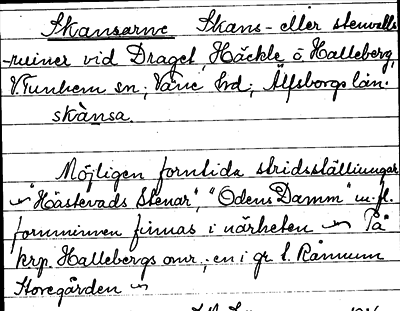 Skansarne Skans- eller stenvalls
-ruiner vid Draget, Häckle ö. Halleberg,
V. Tunhem sn; Väne hrd; Älfsborgs län.
skànsa.
Möjligen forntida stridsställningar
"Hästevads Stenar", "Odens Damm" m. fl.
fornminnen finnas i närheten På
krp. Hallebergs omr; en i gr. t. Rånnum
Storegården